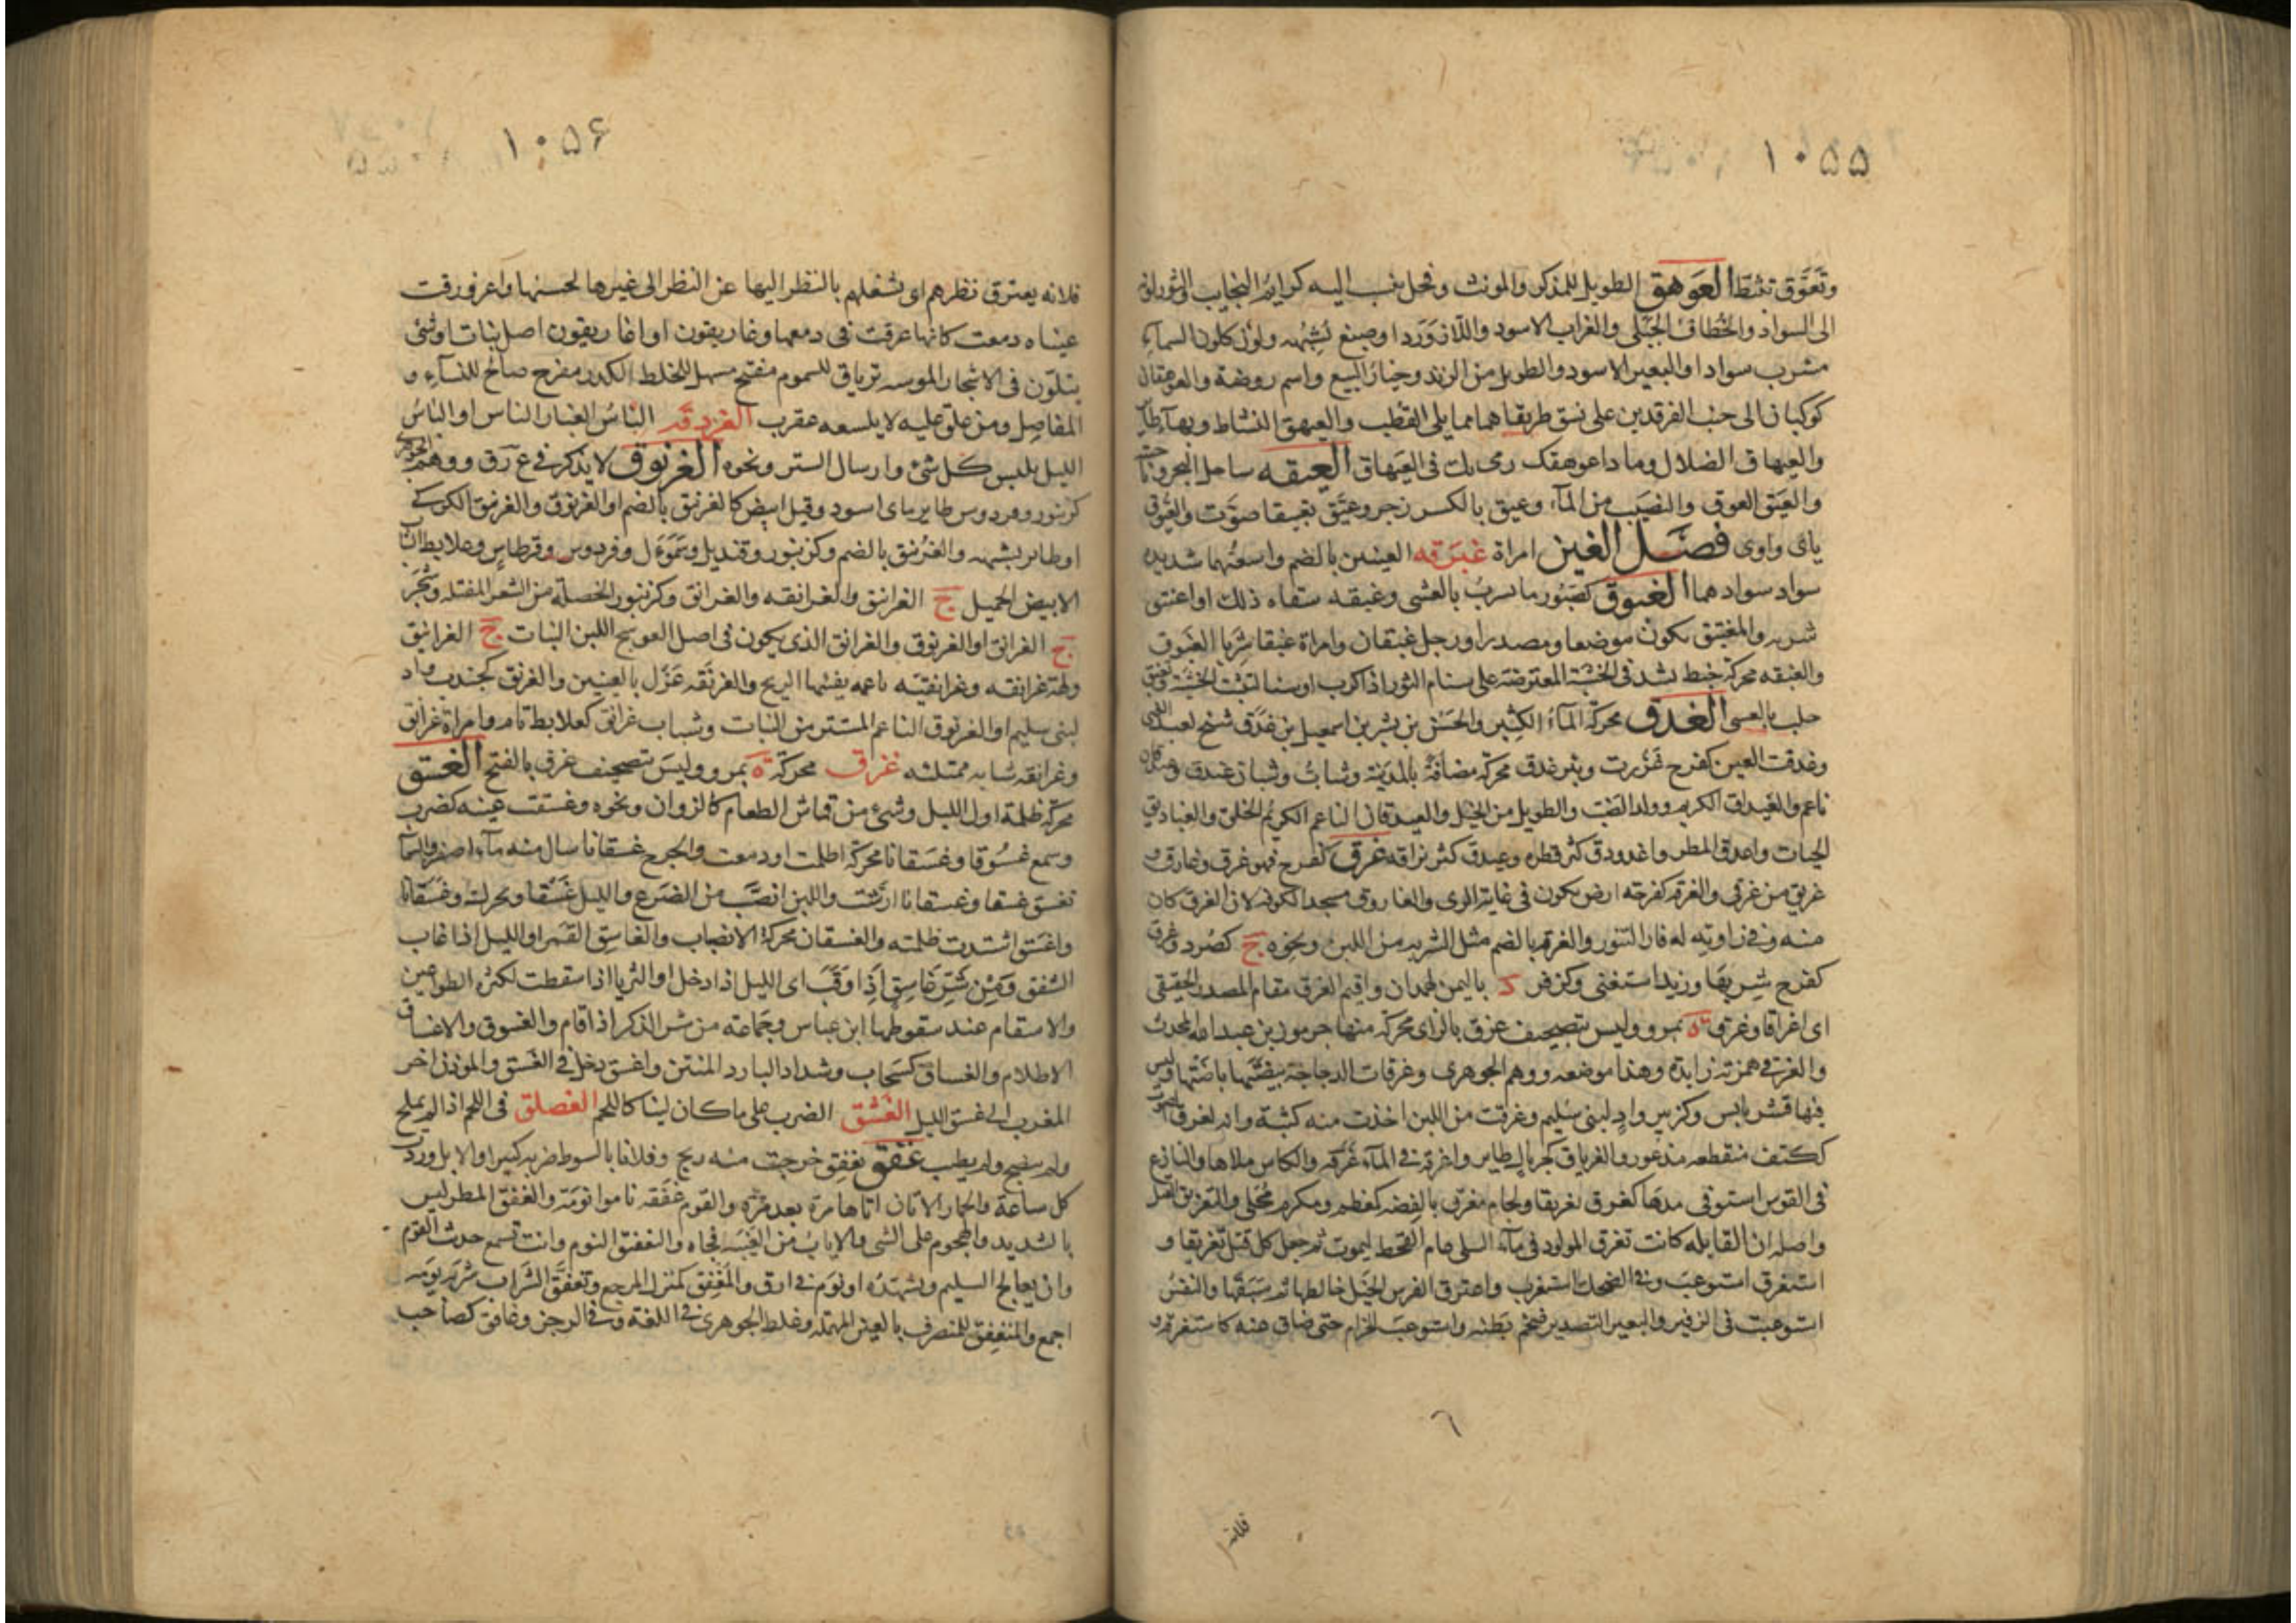 ١٠٥٥
وتَعَوَّق تثبّط العَوهق الطويل للمذكر والمونث وفحل ينسب اليه كرايم النجايب والثور لونه
الى السواد والخُطاف الجَبَلى والغراب الاسود واللازوَرَد او صبغ يُشبِهُه ولون كلون السماءِ
مشرب سوادا والبعير الاسود والطويل من الربد وخيار النبع واسم روضة والعوهقان
كوكبان الى جنب الفرقدين على نسق طريقاهما مما يلى القطب والعيهق النشاط وبهآء طاير
والعيهاق الضلال وما ذا عوهقك رمى بك فى العَيهاق العيقه ساحل البحر وناحيته
والعَيق العوق والنصيب من المآء وعيق بالكسر زجر وعيَّق تعييقا صوّت والعيّوق
ياى واوى فصل الغين امراة غبرقه العينين بالضم واسعتُهما شديده
سواد سوادهما الغبوق كصَبُور ما يشربُ بالعشى وغبقه سقاه ذلك او اغتبق
شربه والمغتبق يكون موضعا ومصدرا ورجل غبقان وامراة غبقا شرِبا الغَبوق
والغبقه محركة خيط يشد فى الخشبة المعترضة على سنام الثور اذا كرب او سنا لتثبت الخشبة وتغبق
حلب بالعسى الغدق محركة المآءُ الكثير والحَسَن بن بشر بن اسمعيل بن غدَق شيخ لعبد الغنى
وغدقت العين كفرح غَزُرت وبئر غدق محركة مضافة بالمدينة وشابٌ وشباب غيدق
ناعم والغيداق الكريم وولد الضب والطويل من الخيل والغيدقان الناعم الكريم الخلق والغياديق
الحيات واغدق المطر واغدودق كثر قطره وغيدق كثر بزاقه غرق كفرح فهو غرق وغارق و
غريق من غرقى والغرقه كفرحة ارض يكون فى غاية الرى والغاروق مسجد الكوفه لان الغرق كان
منه وفى زاويته له فار التنور والغرقه بالضم مثل الشربه من اللبن ونحوه ج كصُرد وغرق
كفرح شربها وزيد استغنى وكزفر د باليمن لهمدان واقيم الغرق مقام المصدر الحقيقى
اى اغراقا وغرق ة بمرو وليس بتصحيف غزق بالزاى محركة منها جرموز بن عبد الله المحدث
والغرقئ همزته زايدة وهذا موضعه ووهم الجوهرى وغرقات الدجاجة بيضتها باضتها وليس
فيها قشر يابس وكزبير وادٍ لبنى سُليم وغرقت من اللبن اخذت منه كثبة وانه لغرق الصوت
ككتف منقطعه مذعور والغرياق كجريال طاير واغرقه فى المآء غَرّقه والكاس ملاها والنازع
فى القوس استوفى مدها كغرق تغريقا ولجام مغرق بالفضه كمعظم ومكرم مُحَلى والتغريق القتل
واصله ان القابله كانت تغرق المولود فى مآء السلى عام القحط ليموت ثم جعل كل قتل تغريقا و
استغرق استوعَب وفى الضحك استغرب واغترق الفرس الخَيل خالطها ثم سَبَقَها والنفسُ
استوعبت فى الزفير والبعير التصدير ضخم بَطنه واستوعب الحزام حتى ضاق عنه كاستغرقه و
٦
فلانه
١٠٥۶
فلانه يغترق نظرهم اى يشغلهم بالنظر اليها عن النظر الى غيرها لحسنها واغرورقت
عيناه دمعت كانها غرقت فى دمعها وغاريقون او اغاريقون اصل نبات او شئ
يتكوّن فى الاشجار المسوسه ترياق للسموم مفتح مسهل للخلط الكدر مفرح صالح للنسآءِ و
المفاصِل ومن علق عليه لا يلسعه عقرب الغردقه الباسُ الغبار الناس او الباسُ
الليل يلبس كل شئ وارسال الستر ونحوه الغرنوق لا يذكر فى غ رَ ق ووهم الجوهرى
كزنبور وفردوس طاير ماى اسود وقيل ابيض كالغرنيق بالضم او الغرنوق والغرنيق الكركى
او طاير يشبهه والغُرنيق بالضم وكزنبور وقنديل وسَمَوءَل وفردوس وقرطاسٍ وعلابط الشاب
الابيض الجميل ج الغرانق والغرانقه والغرانيق وكزنبور الخصلة من الشعر المفتله وشجر
ج الغرانق او الغرنوق والغرانق الذى يكون فى اصل العوسج اللين النبات ج الغرانيق
ولمة غرانقه وغرانقيّه ناعمه يفيئها الريح والغرنَقه غَزَل بالعينين والغرنق كجندب واد
لبنى سليم او الغرنوق الناعم المستتر من النبات وشباب غرانق كعلابط تام وامراة غرانق
وغرانقه شابه ممتلئه غرق محركة ة بمرو وليسَ تصحيف غرق بالفتح الغسق
محركة ظلمة اول الليل وشئ من قماش الطعام كالزوان ونحوه وغسقت عينه كضرب
وسمع غسُوقا وغسَقانا محركة اظلمت او دمعت والجرح غسقانا سال منه مآء اصفر والسمآ
تغسق غسقا وغسقانا ارَشت واللبن انصَبَّ من الضرع والليل غَسَقا ويحرك وغَسَقانا
واغسَق اشتدت ظلمته والغسقان محركة الانصباب والغاسِق القَمَر او الليل اذا غاب
الشفق وَمِنْ شَرِّ غَاسِقٍ اِذَا وَقَبَ اى الليل اذا دخل او الثريا اذا سقطت لكثرة الطواعين
والاسقام عند سقوطها ابن عباس وجماعة من شر الذكر اذا قام والغسوق والاغساق
الاظلام والغساق كسَحاب وشداد البارد المنتن واغسق دخل فى الغَسق والموذن اخر
المغرب الى غسق الليل الغشق الضرب على ما كان لينا كاللحم الغصلقه فى اللحم اذا لم يملح
ولم ينضج ولم يطيب غفق يغفِق خرجت منه ريح وفلانا بالسوط ضربه كثيرا والابل وردت
كل ساعة والحمار الاتان اتاها مرة بعد مَرّة والقوم غفقه ناموا نومَة والغفق المطر ليس
بالشديد والهجوم على الشى والاياب من الغيبَه فجاه والتغفق النوم وانت تسمع حدث القوم
وان يعالج السليم ويسهّدَه او نوم فى ارق والمَغفِق كمنزل المرجع وتغفَّق الشراب شربه يومه
اجمع والمنغفِق المنصرف بالعين المهمله وغلط الجوهرى فى اللغة وفى الرجز وغافق كصاحب